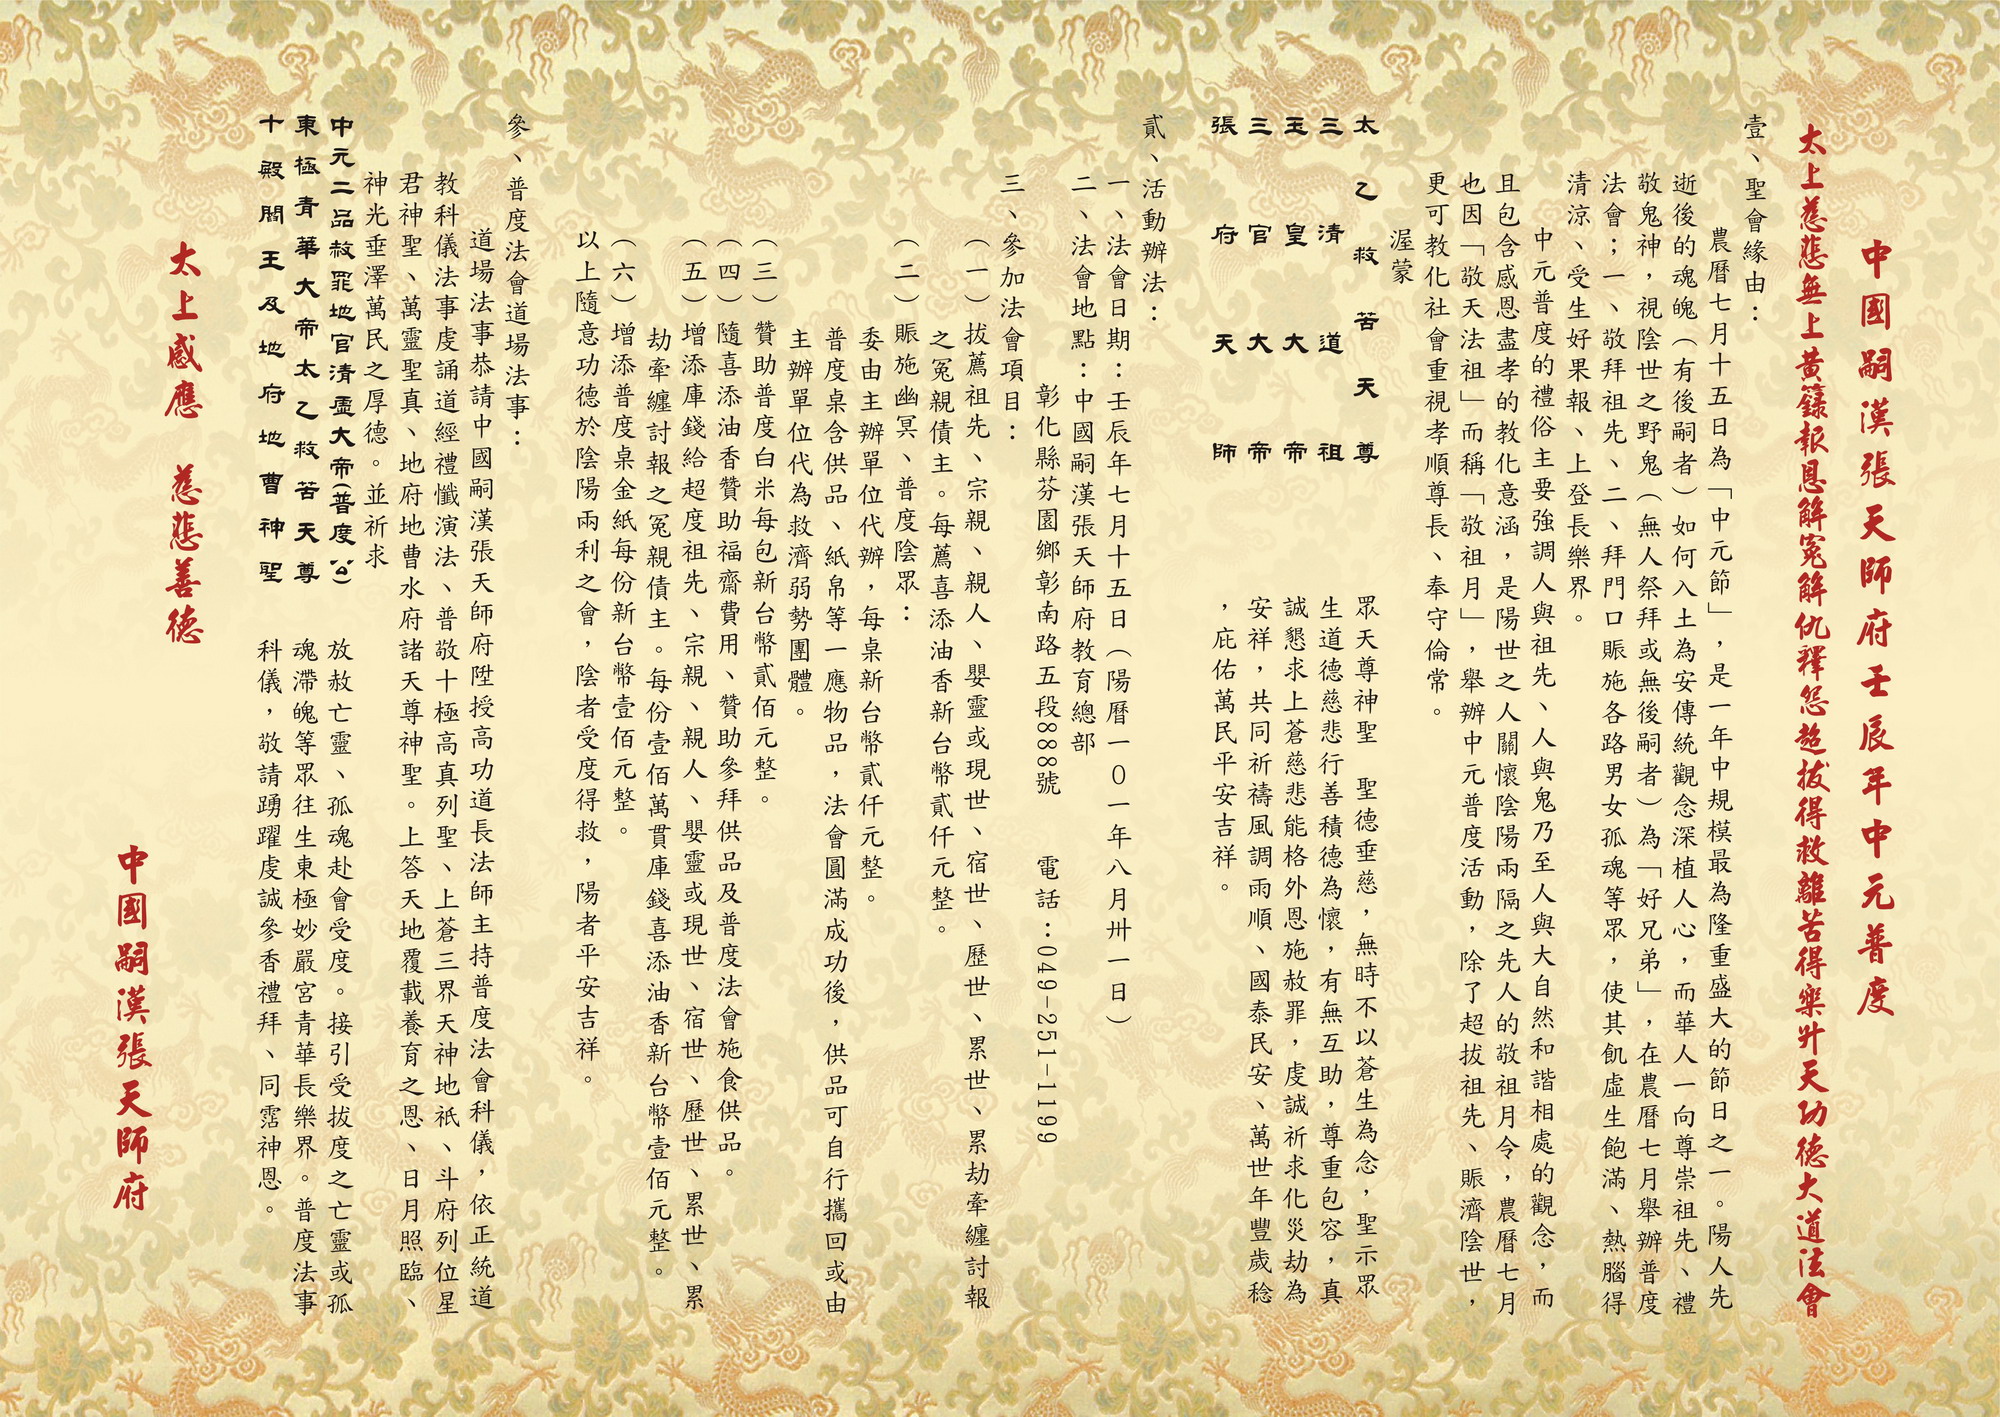 中國嗣漢張天師府壬辰年中元普度
太上慈悲無上黃籙報恩解冤解仇釋怨超拔得救離苦得樂升天功德大道法會
壹、聖會緣由：
農曆七月十五日為「中元節」，是一年中規模最為隆重盛大的節日之一。陽人先
逝後的魂魄（有後嗣者）如何入土為安傳統觀念深植人心，而華人一向尊崇祖先、禮
敬鬼神，視陰世之野鬼（無人祭拜或無後嗣者）為「好兄弟」，在農曆七月舉辦普度
法會；一、敬拜祖先、二、拜門口賑施各路男女孤魂等眾，使其飢虛生飽滿、熱腦得
清涼、受生好果報、上登長樂界。
中元普度的禮俗主要強調人與祖先、人與鬼乃至人與大自然和諧相處的觀念，而
且包含感恩盡孝的教化意涵，是陽世之人關懷陰陽兩隔之先人的敬祖月令，農曆七月
也因「敬天法祖」而稱「敬祖月」，舉辦中元普度活動，除了超拔祖先、賑濟陰世，
更可教化社會重視孝順尊長、奉守倫常。
渥蒙
太乙救苦天尊
三清道祖
玉皇大帝
三官大帝
張府天師
眾天尊神聖　聖德垂慈，無時不以蒼生為念，聖示眾
生道德慈悲行善積德為懷，有無互助，尊重包容，真
誠懇求上蒼慈悲能格外恩施赦罪，虔誠祈求化災劫為
安祥，共同祈禱風調雨順、國泰民安、萬世年豐歲稔
，庇佑萬民平安吉祥。
貳、活動辦法：
一、法會日期：壬辰年七月十五日（陽曆一０一年八月卅一日）
二、法會地點：中國嗣漢張天師府教育總部
彰化縣芬園鄉彰南路五段888號　電話：049-251-1199
三、參加法會項目：
（一）拔薦祖先、宗親、親人、嬰靈或現世、宿世、歷世、累世、累劫牽纏討報
之冤親債主。每薦喜添油香新台幣貳仟元整。
（二）賑施幽冥、普度陰眾：
委由主辦單位代辦，每桌新台幣貳仟元整。
普度桌含供品、紙帛等一應物品，法會圓滿成功後，供品可自行攜回或由
主辦單位代為救濟弱勢團體。
（三）贊助普度白米每包新台幣貳佰元整。
（四）隨喜添油香贊助福齋費用、贊助參拜供品及普度法會施食供品。
（五）增添庫錢給超度祖先、宗親、親人、嬰靈或現世、宿世、歷世、累世、累
劫牽纏討報之冤親債主。每份壹佰萬貫庫錢喜添油香新台幣壹佰元整。
（六）增添普度桌金紙每份新台幣壹佰元整。
以上隨意功德於陰陽兩利之會，陰者受度得救，陽者平安吉祥。
參、普度法會道場法事：
道場法事恭請中國嗣漢張天師府陞授高功道長法師主持普度法會科儀，依正統道
教科儀法事虔誦道經禮懺演法、普敬十極高真列聖、上蒼三界天神地祇、斗府列位星
君神聖、萬靈聖真、地府地曹水府諸天尊神聖。上答天地覆載養育之恩、日月照臨、
神光垂澤萬民之厚德。並祈求
中元二品赦罪地官清虛大帝（普度公）
東極青華大帝太乙救苦天尊
十殿閻王及地府地曹神聖
放赦亡靈、孤魂赴會受度。接引受拔度之亡靈或孤
魂滯魄等眾往生東極妙嚴宮青華長樂界。普度法事
科儀，敬請踴躍虔誠參香禮拜、同霑神恩。
太上感應　慈悲善德
中國嗣漢張天師府